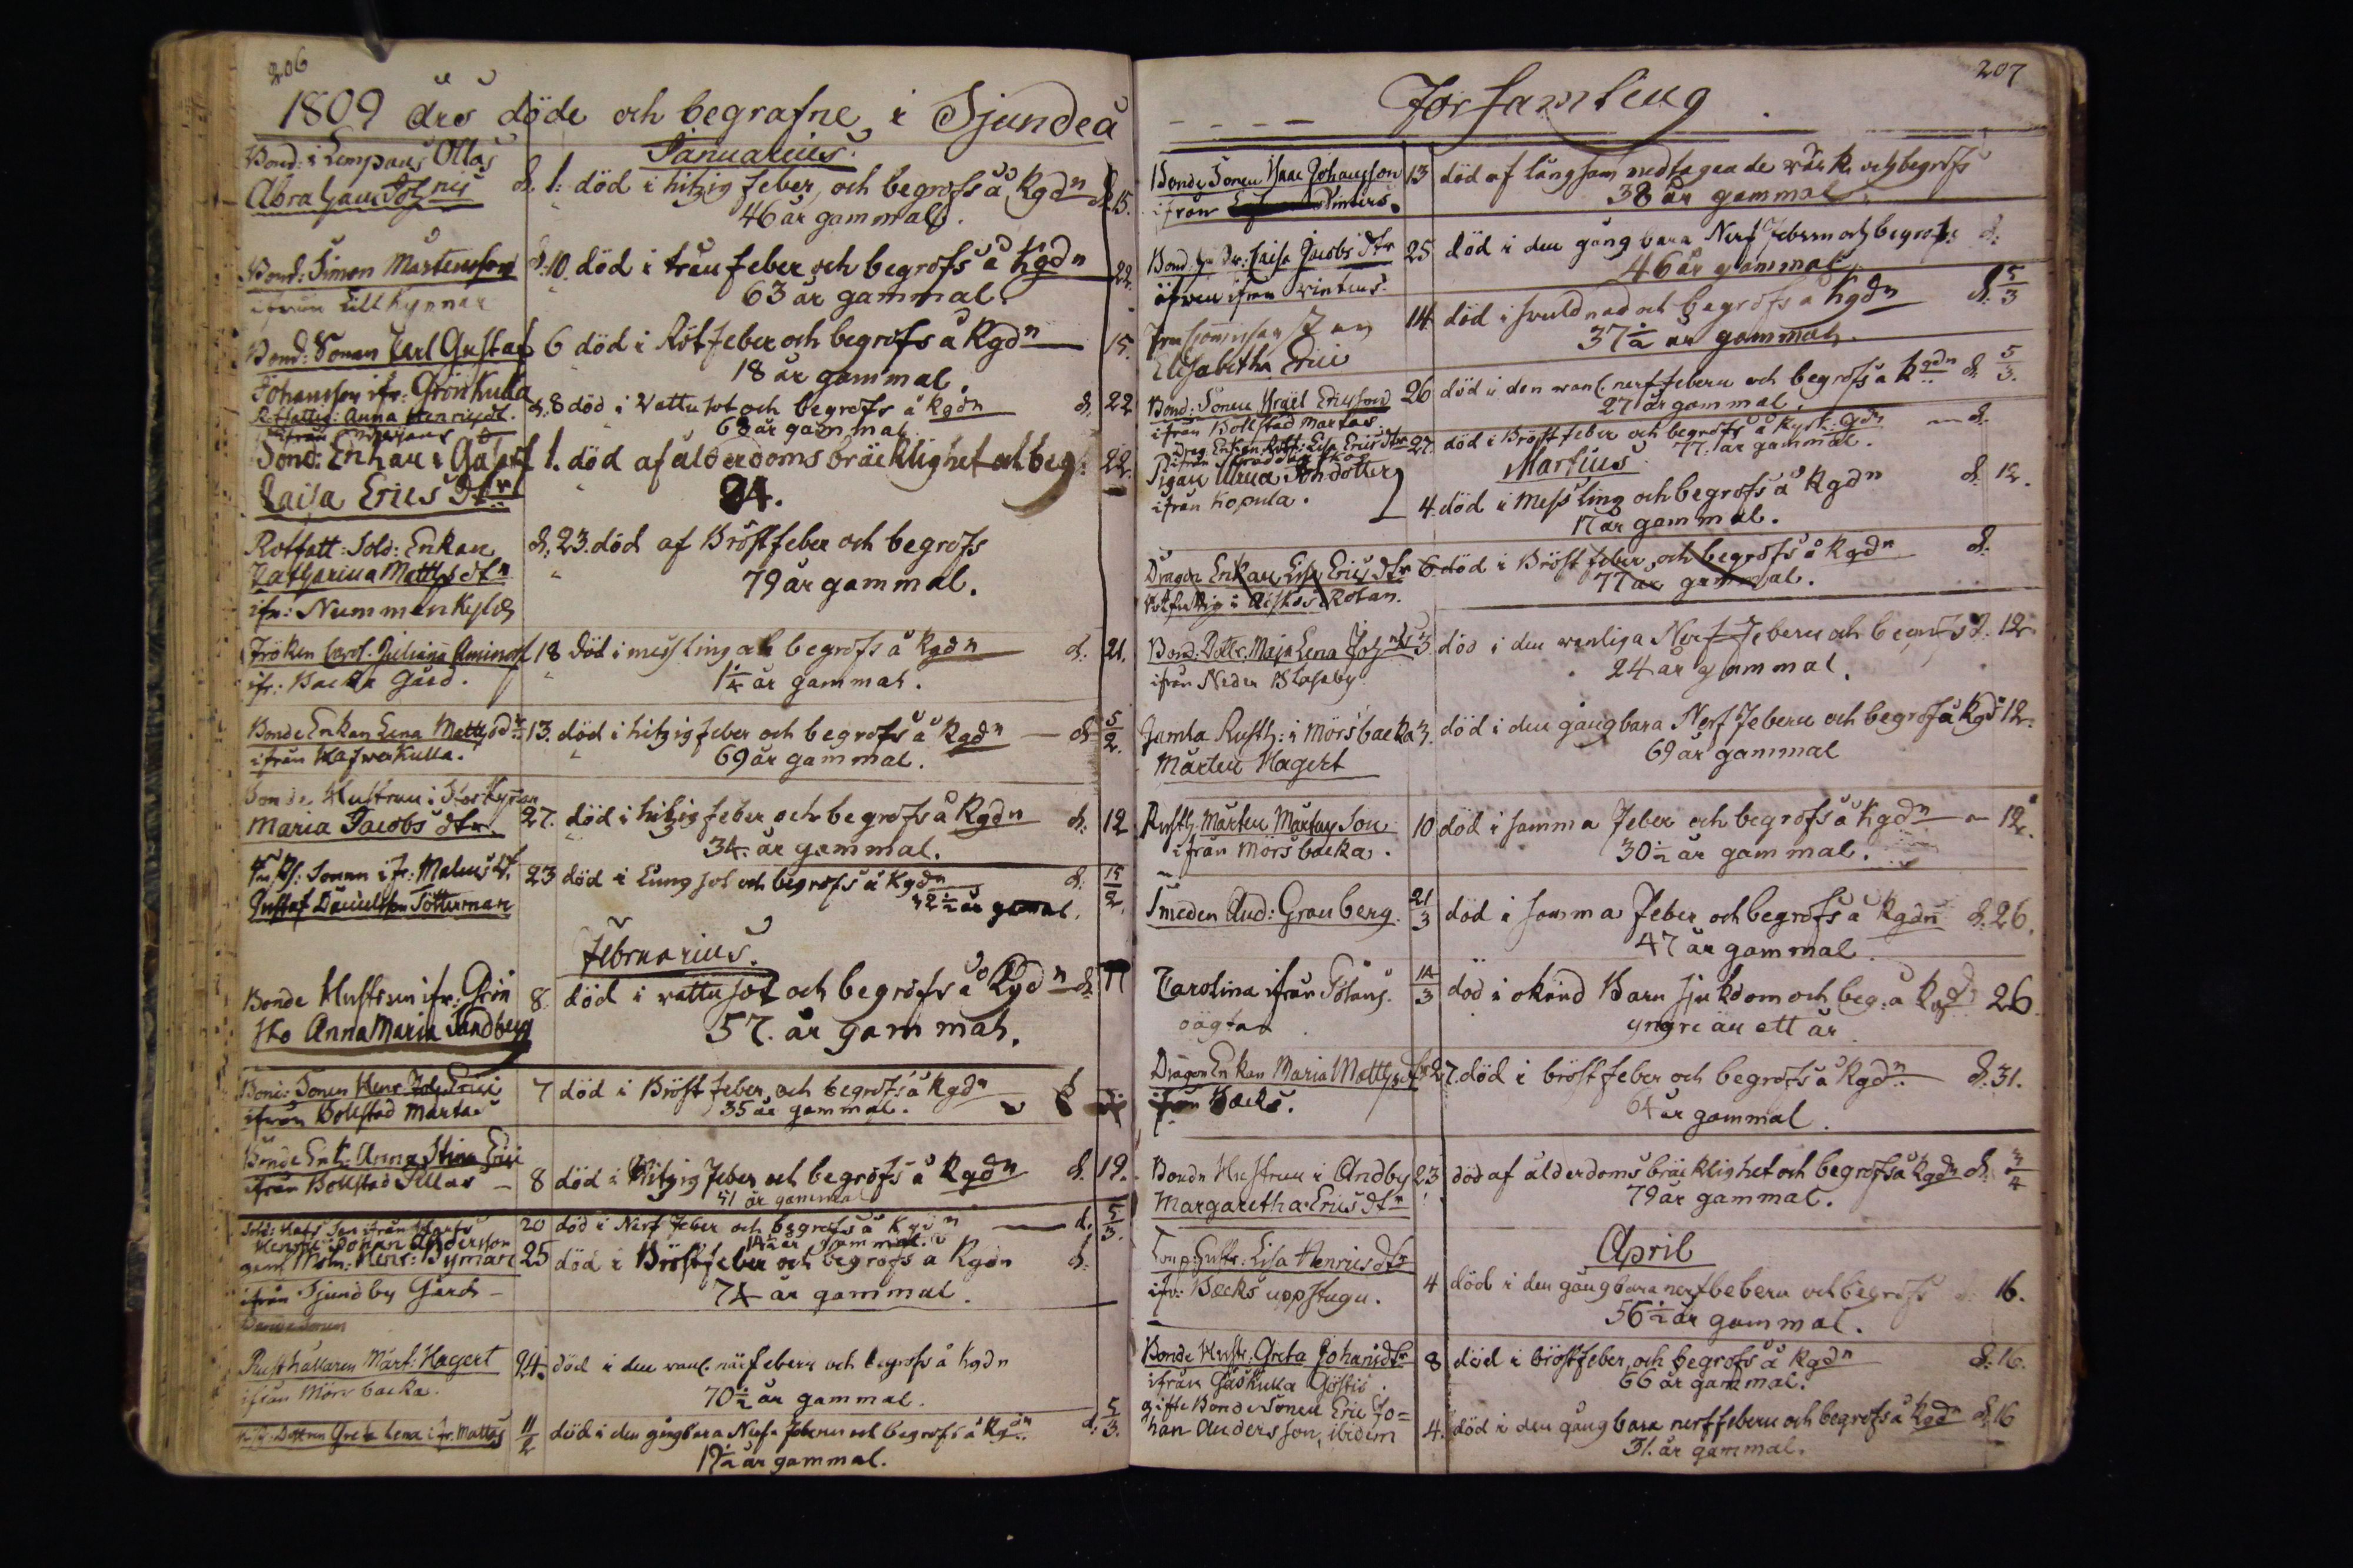 206
1809 års döde och begrafne i Sjundeå
Januarius.
Bond: i Lempans Ollas
Abraham Johnis d. 1. död i hitzig feber, och begrofs å Kgdn d. 15.
46 år gammal.
Bond: Simon Mårtensson d. 10. död i trån feber och begrofs å Kgdn 22.
ifrån Lill Kyrmar 63 år gammal.
Bond: Sonen Karl Gustaf 6 död i Rötfeber och begrofs å Kgdn 15.
Johansson ifr: Grönkulla 18 år gammal.
Rotfattig: Anna Henricsdt. d. 8 död i Vattusot och begrofs å Kgdn d. 22
ifrån 68 år gammal
Bond: Enkan i Gasarf 1. död af ålderdoms bräcklighet och beg: 22.
Caisa Erics Dtr 84.
Rotfatt: Sold: Enkan d. 23. död af Bröstfeber och begrofs
Catharina Matts dtr 79 år gammal.
ifr: Nummenkylä
Fröken Carol. Juliana Aminoff 18 död i messling och begrofs å Kgdn d. 21.
ifr: Backa Gård. 1 1/4 år gammal.
Bonde Enkan Lena Mattsdtr 13. död i hitzig feber och begrofs å Kgdn d. 5/2.
ifrån Hafverkulla. 69 år gammal.
Bonde Hustrun i Stor Kyrar
Maria Jacobs dtr. 27. död i hitzig feber och begrofs å Kgdn d. 12
34. år gammal.
Sonen ifr: Malms
Gustaf Danielsson Tötterman 23 död i Lungsot och begrofs å Kgdn d. 15/2.
år gamal.
Februarius.
Bonde Hustrun ifr: Grön 8. död i vattusot och begrofs å Kgdn d. 11
sko Anna Maria Sandberg 57. år gammal.
Bond: Sonen Henr Joh: Erici 7 död i Bröst feber, och begrofs å Kgdn
ifrån Bollstad Martas 35 år gammal.
Bonde Enk: Anna Stina Erici
ifrån Bollstad Sillas 8 död i Hitzig feber och begrofs å Kgdn d. 19.
51 år gammal
20 död i Nerf feber och begrofs å Kgdn d. 5/3.
Henric Johan Andersson 14 1/2 år gammal.
gam: Henr: Byman 25 död i Bröstfeber och begrofs å Kgdn d.
ifrån Sjundby Gård 74 år gammal.
Bondesonen
Rusthållaren Mårt: Hagert 24. död i den vanl. närfebern och begrofs å Kgdn
ifrån Mörsbacka. 70 1/2 år gammal.
Dottren Greta Lena ifr. Mattas 11/2 död i den gångbara Nerf febern och begrofs å Kgdn d. 5/3.
17 1/2 år gammal.
207
Församling
Bonde Sonen Isaac Johansson 13 död af långsam nedtagande värk och begrofs
ifrån Vinters. 38 år gammal
Bond Hu Dr: Caisa Jacobs dtr 25 död i den gångbara Nerf Febern och begrofs d:
äfven ifrån Vinters. 46 år gammal
14 död i svuldnad och begrofs å Kgdn d. 5/3
Elisabetha Erici 37 1/2 år gammal.
Bond: Sonen Israel Ericsson 26 död i den vanl. nerffebern och begrofs å Kgdn d. 5/3.
ifrån Bollstad Martas 27 år gammal.
Drag. Enkan Rotf: Lisa Erics dtr 27. död i Bröstfeber och begrofs å Kyrk: gdn d.
77. år gammal.
Martius
Pigan Ulrica Joh dotter
ifrån Kopula. 4. död i Messling och begrofs å Kgdn d. 12.
17 år gammal.
Dragon Enkan Lisa Erics dtr 6 död i Bröst feber, och begrofs å Kgdn d.
Rotfattig i Rotan. 77 år gammal.
Bond: Dottr. Maja Lena Johnds 3. död i den vanliga Nerf Febern och begrofs d. 12.
ifrån Neder Blåsaby 24 år gammal.
Gamla Rusth: i Mörsbacka 3. död i den gångbara Nerf Febern och begrofs å Kgdn 12.
Mårten Hagert 69 år gammal
Rusth. Mårten Mårtensson 10 död i samma Feber och begrofs å Kgdn 12.
ifrån Mörsbacka. 30 1/2 år gammal.
Smeden And: Granberg. 21/3 död i samma Feber och begrofs å Kgdn d. 26.
47 år gammal.
Carolina ifrån Pölans. 14/3 död i okänd Barn sjukdom och beg: å Kgd 26
oägta yngre än ett år
Dragon Enkan Maria Matts dtr 27. död i bröstfeber och begrofs å Kgdn. d. 31.
ifrån Bäcks. 64 år gammal.
Bonde Hustrun i Andby 23 död af ålderdoms bräcklighet och begrofs å Kgdn d. 3/4
Margaretha Erics dtr 79 år gammal.
April
Hustr. Lisa Henrics dtr
ifr: Bäcks uppstugu. 4 död i den gångbara nerfbebern och begrofs 16.
56 1/2 år gammal.
Bonde Hustr: Greta Johansdtr 8 död i bröstfeber, och begrofs å Kgdn d. 16.
ifrån Gåskulla Göstis. 66 år gammal.
gifte Bonde Sonen Eric Jo=
han Andersson, ibidem 4. död i den gångbara nerffebern och begrofs å Kgdn d. 16
31. år gammal.